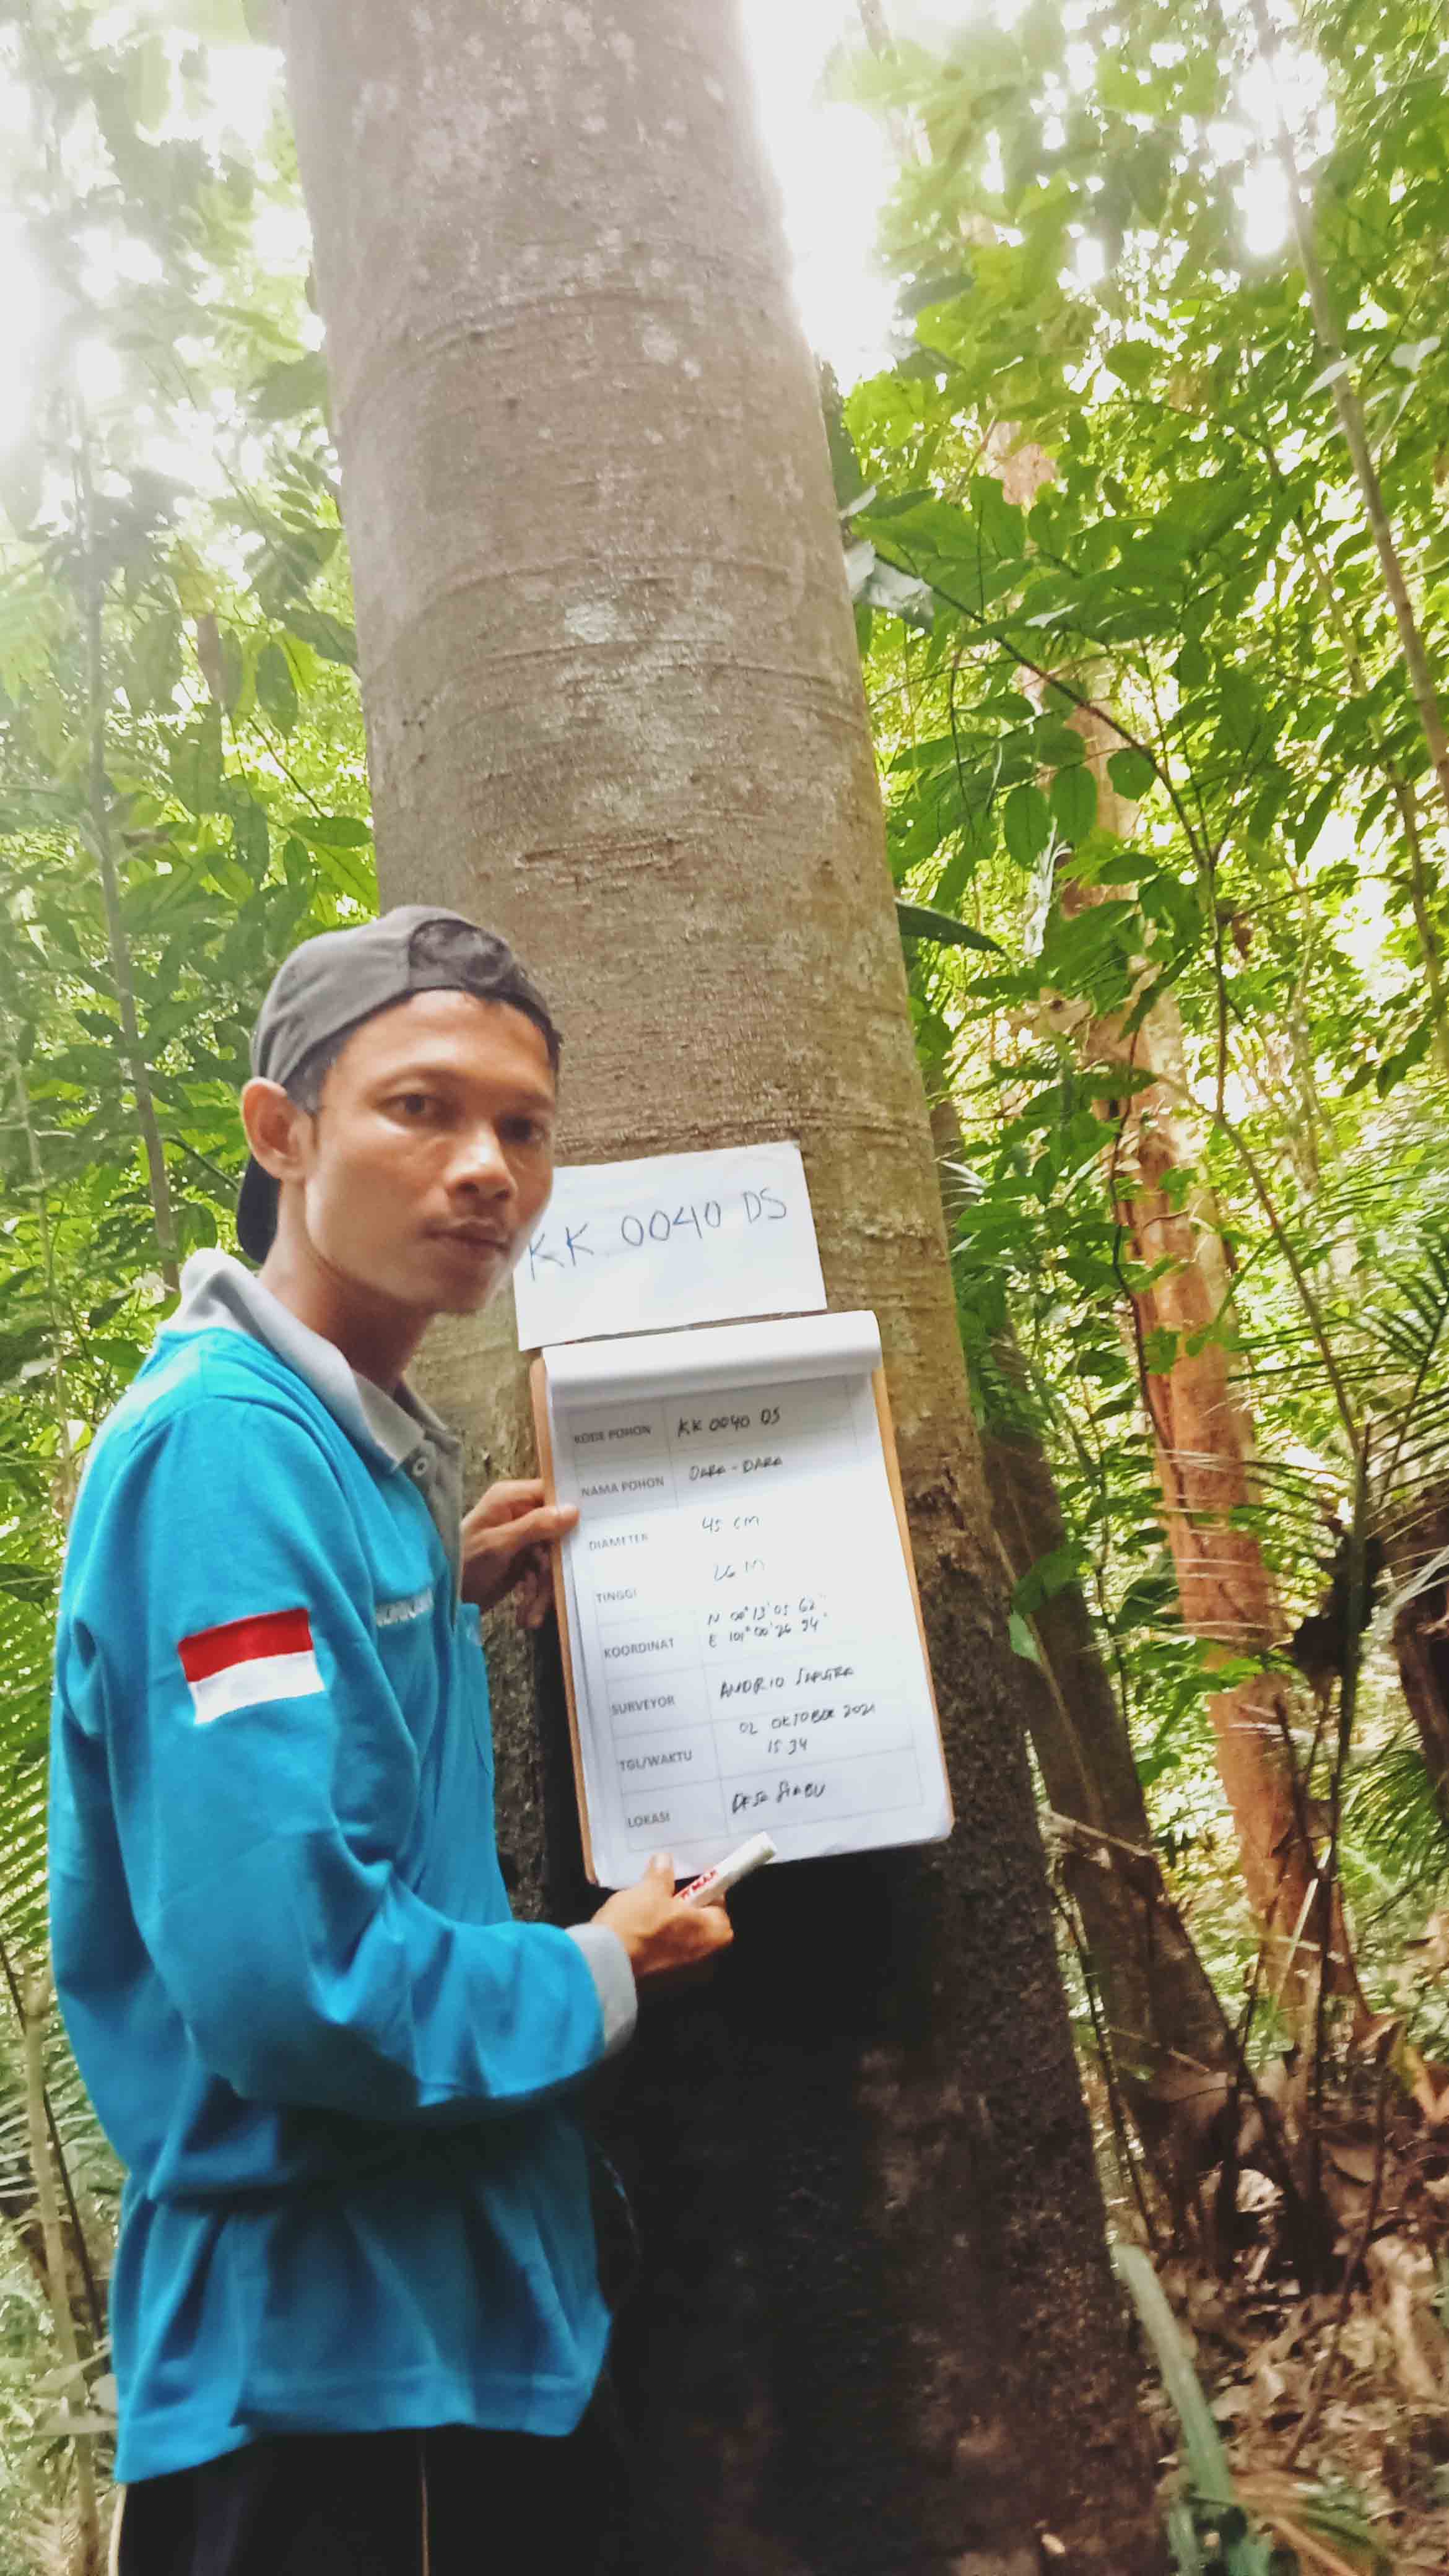 KK 0040 DS
KODE POHON KK 0040 DS
NAMA POHON DARA-DARA
DIAMETER 45 CM
TINGGI 26 M
KOORDINAT N 00° 13' 05 62"
E 101° 00' 26 94"
SURVEYOR ANDRIO SAPUTRA
TGL/WAKTU 02 OKTOBER 2021
15 34
LOKASI DESA SIABU